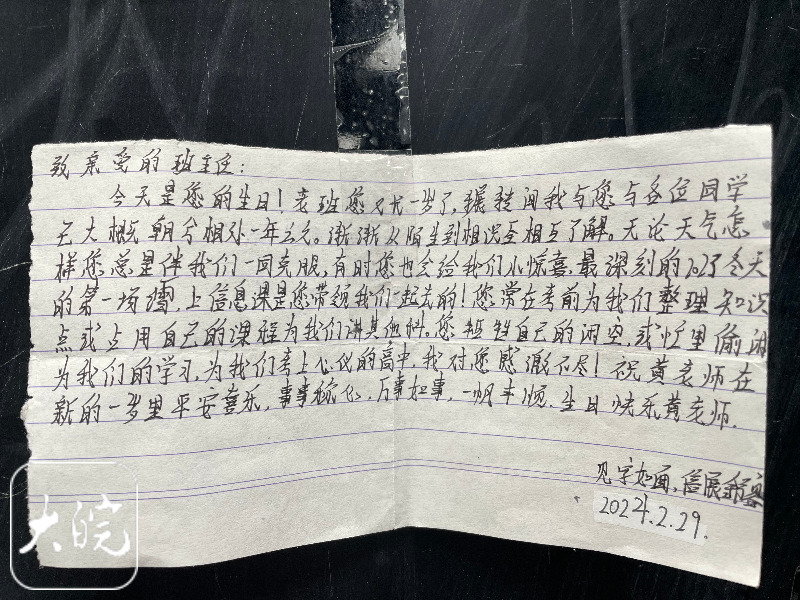 致亲爱的班主任:
今天是您的生日!老班您又大一岁了,辗转间我与您与各位同学
已大概朝夕相处一年公元。渐渐从陌生到相识至相互了解。无论天气怎
样您总是伴我们一同克服,有时您也会给我们小惊喜.最深刻的2023冬天
的第一场雪,上信息课是您带领我们一起去的!您常在考前为我们整理知识
点或占用自己的课程为我们讲其他科。您牺牲自己的闲空,或忙里偷闲
为我们的学习,为我们考上心仪的高中,我对您感激不尽!祝黄老师在
新的一岁里平安喜乐,事事称心,万事如事,一帆丰顺.生日快乐黄老师.
见字如面,信展
2024.2.29.
大皖